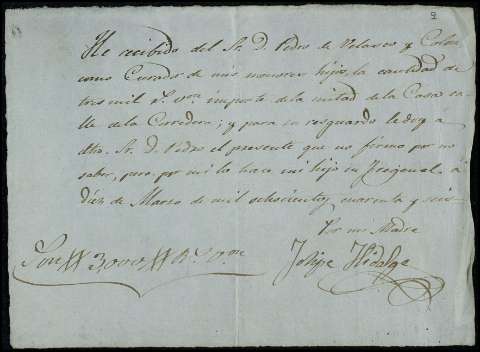 He recibido del Sr. D. Pedro de Velasco y Colon
como Curador de mis menores hijos, la cantidad de
tres mil rs. von. importe de la mitad de la Casa ca-
lle de la Corredera; y para su resguardo le doy a
dho. Sr. D. Pedro el presente que no firmo por no
saber, pero por mi lo hace mi hijo en Fregenal a
diez de Marzo de mil ochocientos cuarenta y seis
Por mi Madre
Son # 3,000 # Rs. von
Felipe Hidalgo